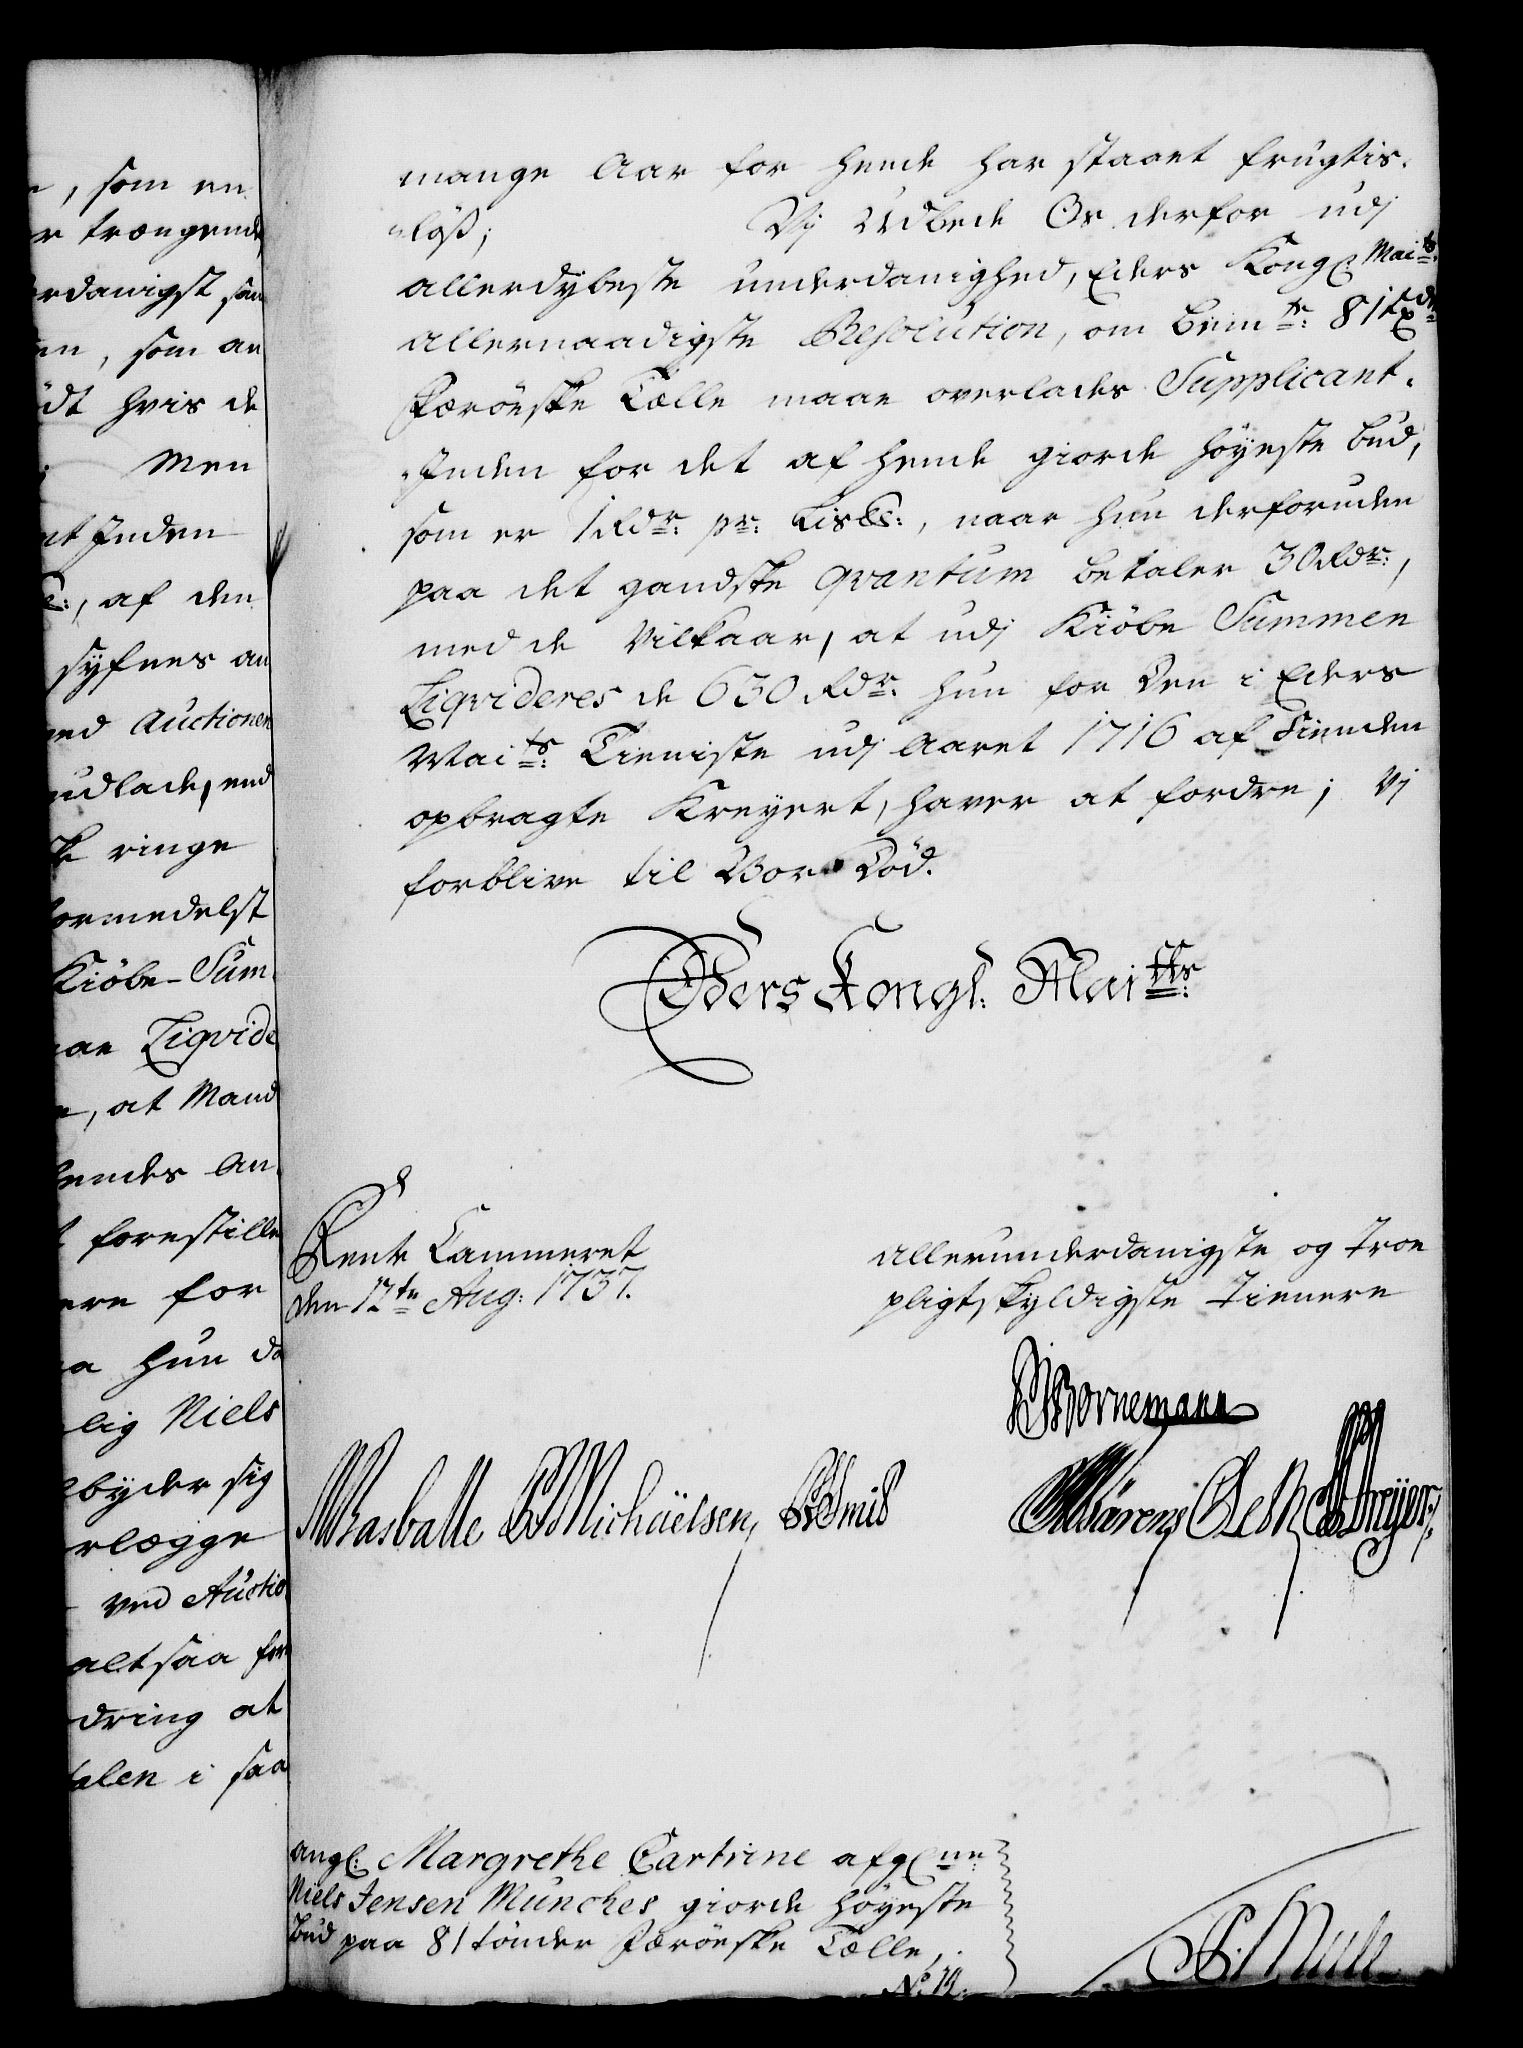 , som en
trængende
erdanigst saa
en, som an
ødt hvis de
Men
at Inden
, af den
syfnes an
ved Auctionen
udlade, end
ringe
formedelst
Kiöbe-Sum-
Liqvide
, at Mand
hendes An-
forestille
ere for
a hun da
lig Niels
byder sig
rlægge
ved Auctio
altsaa for
dring at
talen i saa
mange Aar for hende har staaet frugtis-
löß; Vj Udbede Os derfor udj
allerdybeste underdanighed, Eders Kongl: Maits:
allernaadigste Resolution, om bemte: 81 tdr
Færöeske Tælle maae overlades Supplicant-
Inden for det af hende giorde höyeste bud,
som er 1 Rdr: pr: Lis℔:, naar hun derforuden
paa det gandske qvantum betaler 30 Rdr:,
med de Vilkaar, at udj Kiöbe Summen
Liqvideres de 630 Rdr: hun for Den i Eders
Maits: Tieniste udj Aaret 1716 af Fienden
opbragte Kreyert, haver at fordre; Vj
forblive til Vor Död.
Eders Kongl: Maitts:
Rente Cammeret
den 12te Aug: 1737.
allerunderdanigste og troe
pligtskyldigste Tienere
Bornemann
Basballe Michaelsen
ang: Margrethe Cartrine afgl:ne
Niels Jensen Munches giorde höyeste
bud paa 81 tönder Færöeske Tælle,
No 12.